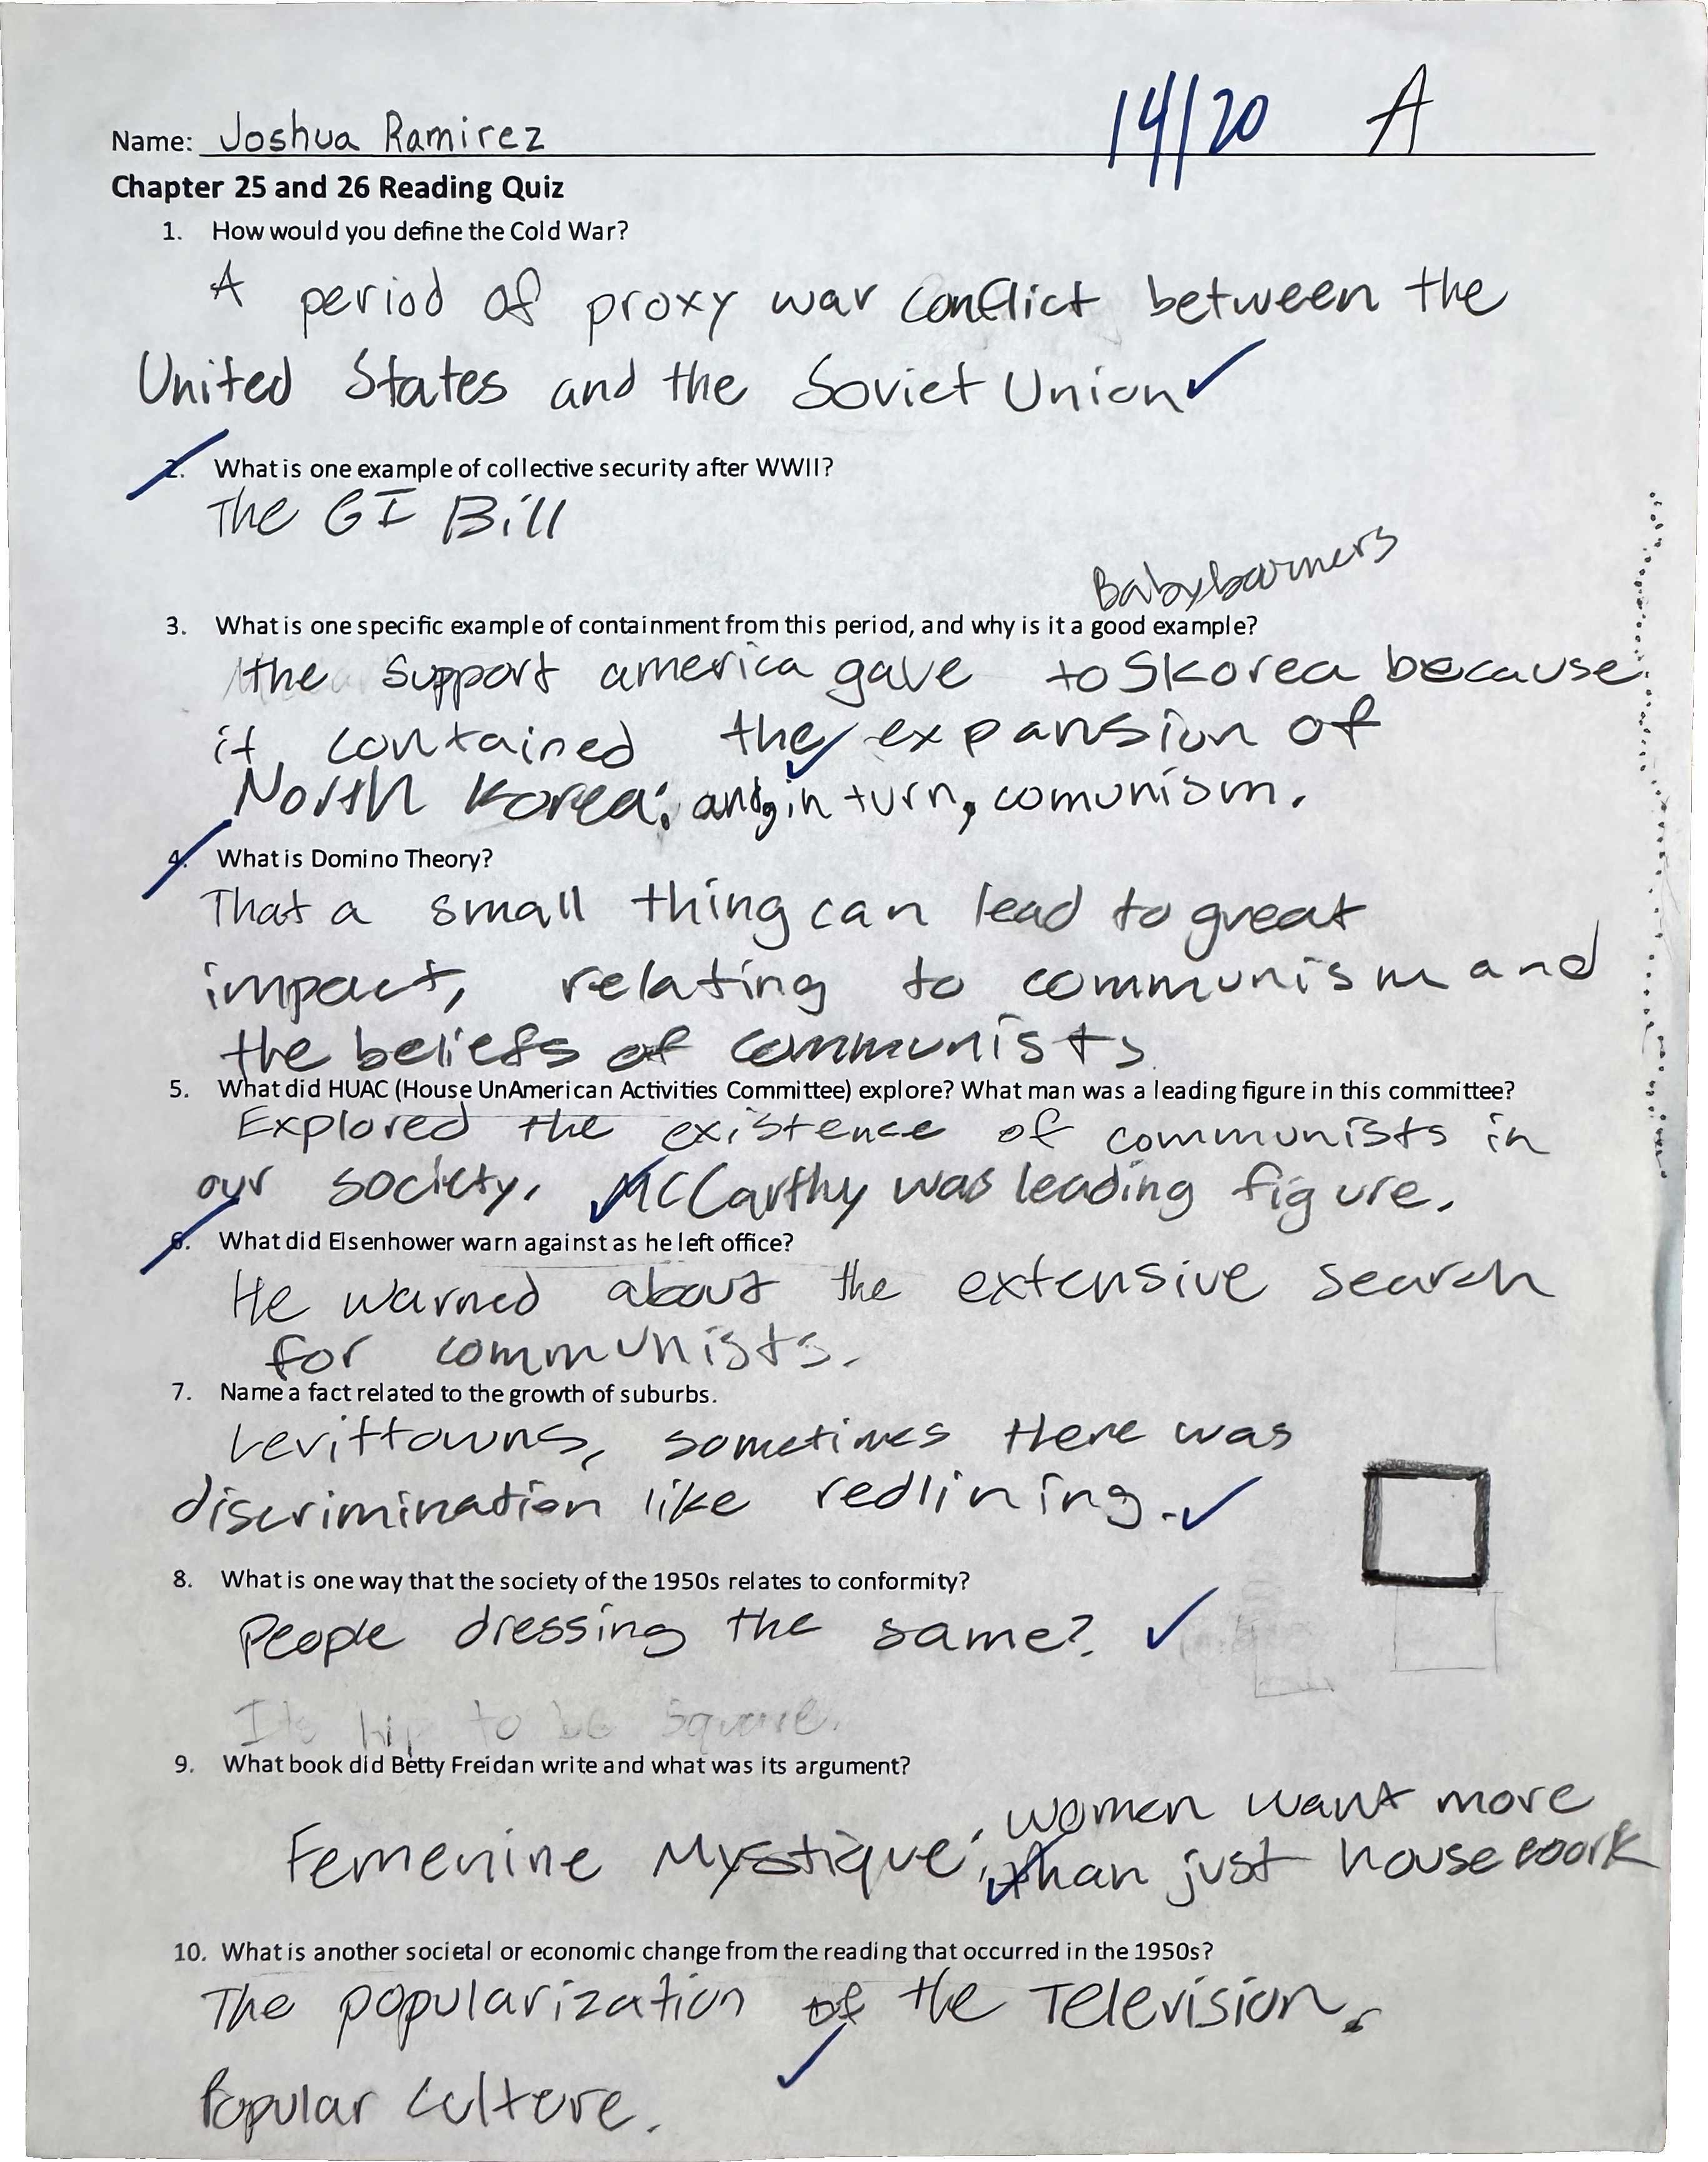 14/20 A
Name: Joshua Ramirez
Chapter 25 and 26 Reading Quiz
1. How would you define the Cold War?
A period of proxy war conflict between the
United States and the Soviet Union
2. What is one example of collective security after WWII?
The GI Bill
Babyboomers
3. What is one specific example of containment from this period, and why is it a good example?
the support america gave to Skorea because
it contained the expansion of
North Korea; and, in turn, comunism.
4. What is Domino Theory?
That a small thing can lead to great
impact, relating to communism and
the beliefs of communists
5. What did HUAC (House UnAmerican Activities Committee) explore? What man was a leading figure in this committee?
Explored the existence of communists in
our society. McCarthy was leading figure.
6. What did Eisenhower warn against as he left office?
He warned about the extensive search
for communists.
7. Name a fact related to the growth of suburbs.
Levittowns, sometimes there was
discrimination like redlining.
8. What is one way that the society of the 1950s relates to conformity?
People dressing the same?
Its hip to be square.
9. What book did Betty Freidan write and what was its argument?
women want more
Femenine Mystique; than just housework
10. What is another societal or economic change from the reading that occurred in the 1950s?
The popularization of the Television.
Popular culture.